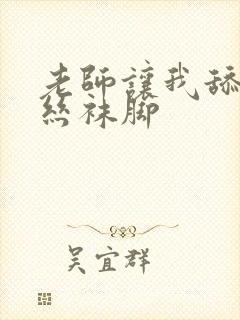 老師讓我舔
絲袜脚
吴宜群